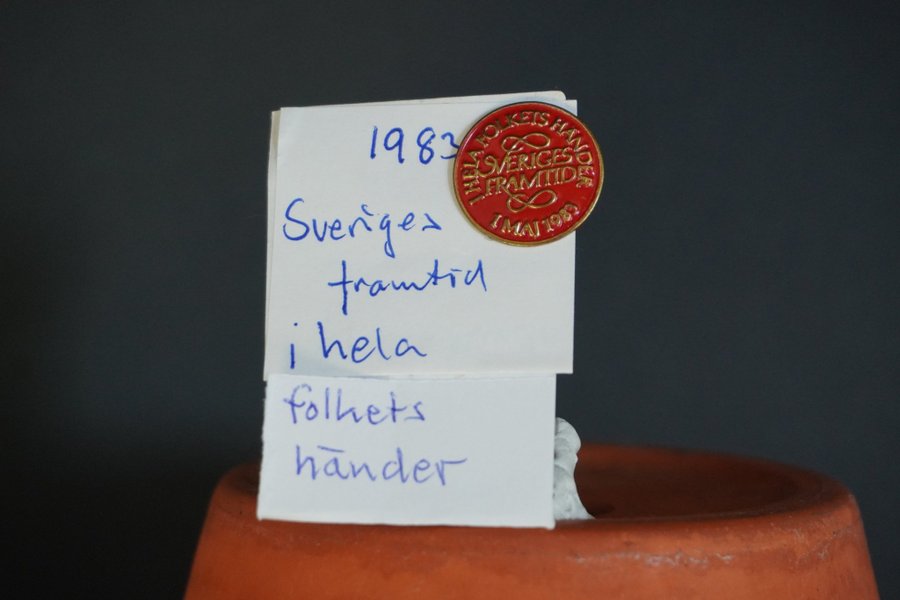 1983
Sveriges
framtid
i hela
folkets
händer
I HELA FOLKETS HÄNDER
SVERIGES
FRAMTID
1 MAJ 1983